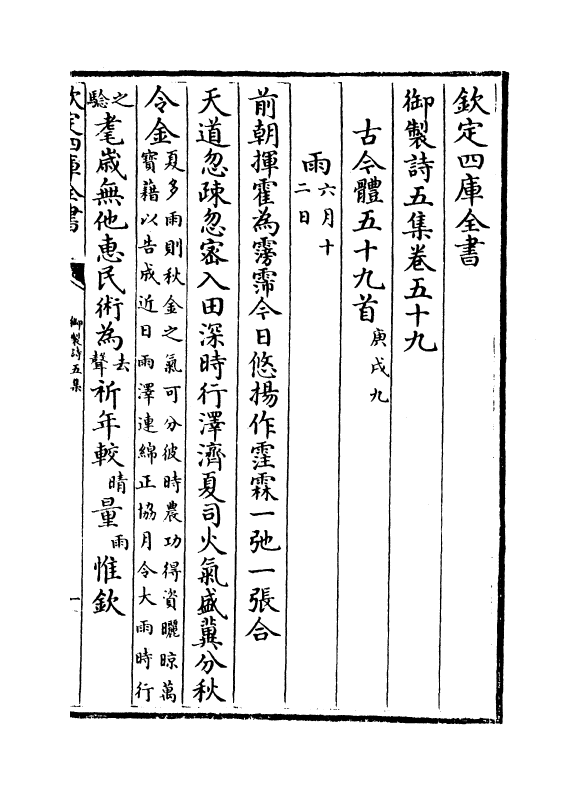 欽定四庫全書
御製詩五集卷五十九
古今體五十九首庚戌九
雨六月十二日
前朝揮霍為霶霈今日悠揚作霔霖一弛一張合
天道忽疎忽宻入田深時行澤濟夏司火氣盛冀分秋
令金夏多雨則秋金之氣可分彼時農功得資曬晾萬
寶藉以告成近日雨澤連綿正協月令大雨時行
之騐耄歳無他惠民術為去聲祈年較晴量雨惟欽
欽定四庫全書
御製詩五集
一